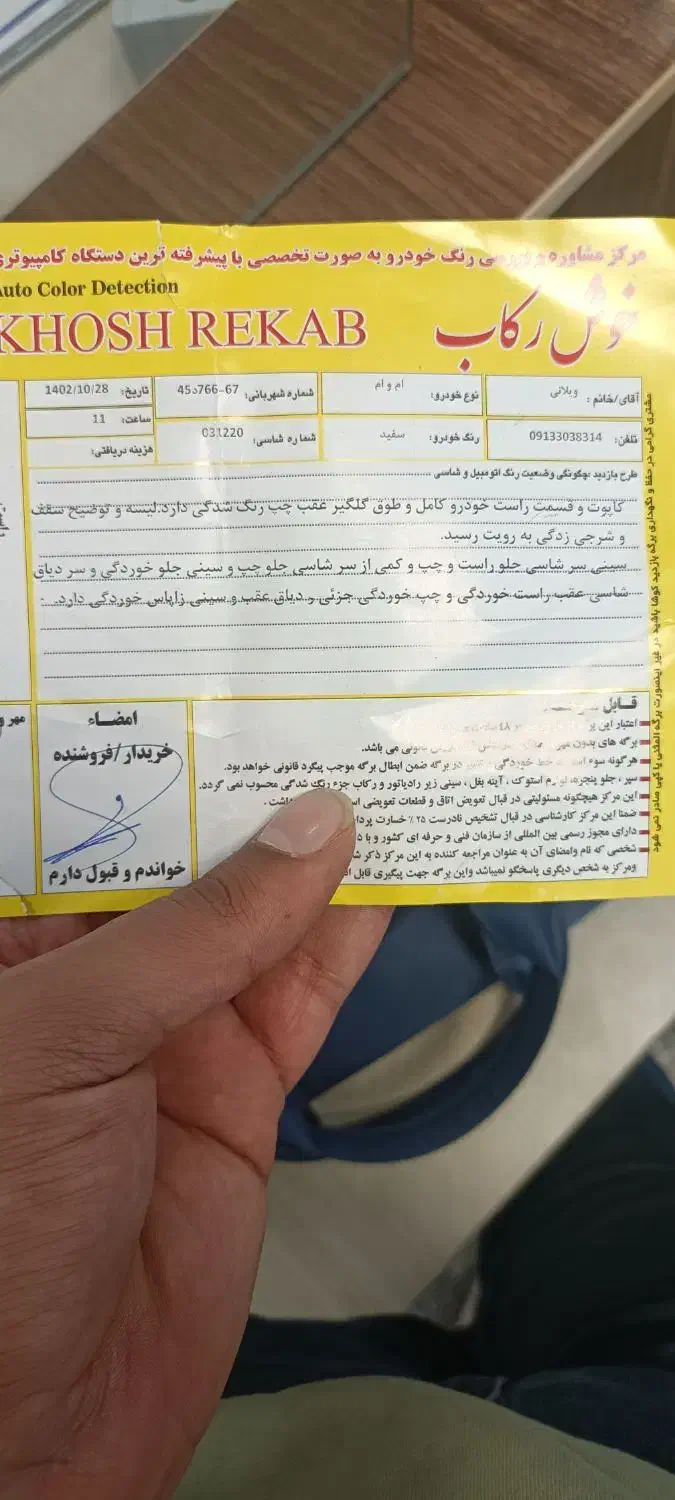 مرکز مشاوره و بررسی رنگ خودرو به صورت تخصصی با پیشرفته ترین دستگاه کامپیوتری
Auto Color Detection
KHOSH REKAB
خوش رکاب
آقای/خانم : ویلانی
نوع خودرو: ام وام
شماره شهربانی: 67-766د45
تاریخ: 1402/10/28
ساعت: 11
تلفن: 09133038314
رنگ خودرو: سفید
شماره شاسی: 031220
هزینه دریافتی:
طرح بازدید :چگونگی وضعیت رنگ اتومبیل و شاسی
کاپوت و قسمت راست خودرو کامل و طوق گلگیر عقب چپ رنگ شدگی دارد.لیسه و توضیح سقف
و شرجی زدگی به رویت رسید.
سینی سر شاسی جلو راست و چپ و کمی از سر شاسی جلو چپ و سینی جلو خوردگی و سر دیاق
شاسی عقب راست خوردگی و چپ خوردگی جزئی ، دیاق عقب و سینی زاپاس خوردگی دارد.
مشتری گرامی در حفظ و نگهداری برگه بازدید کوشا باشید در غیر اینصورت برگه المثنی یا کپی صادر نمی شود
اعتبار این
برگه های بدون مهر می باشد.
هرگونه سوء خط خوردگی در برگه ضمن ابطال برگه موجب پیگرد قانونی خواهد بود.
سپر ، جلو پنجره، استوک ، آینه بغل ، سینی زیر رادیاتور و رکاب جزء رنگ شدگی محسوب نمی گردد.
این مرکز هیچگونه مسئولیتی در قبال تعویض اتاق و قطعات تعویضی
ضمنا این مرکز کارشناسی در قبال تشخیص نادرست ۲۵ ٪ خسارت
دارای مجوز رسمی بین المللی از سازمان فنی و حرفه ای کشور و با
شخصی که نام وامضای آن به عنوان مراجعه کننده به این مرکز ذکر
ومرکز به شخص دیگری پاسخگو نمیباشد واین برگه جهت پیگیری قابل
امضاء
خریدار/فروشنده
خواندم و قبول دارم
مهر و